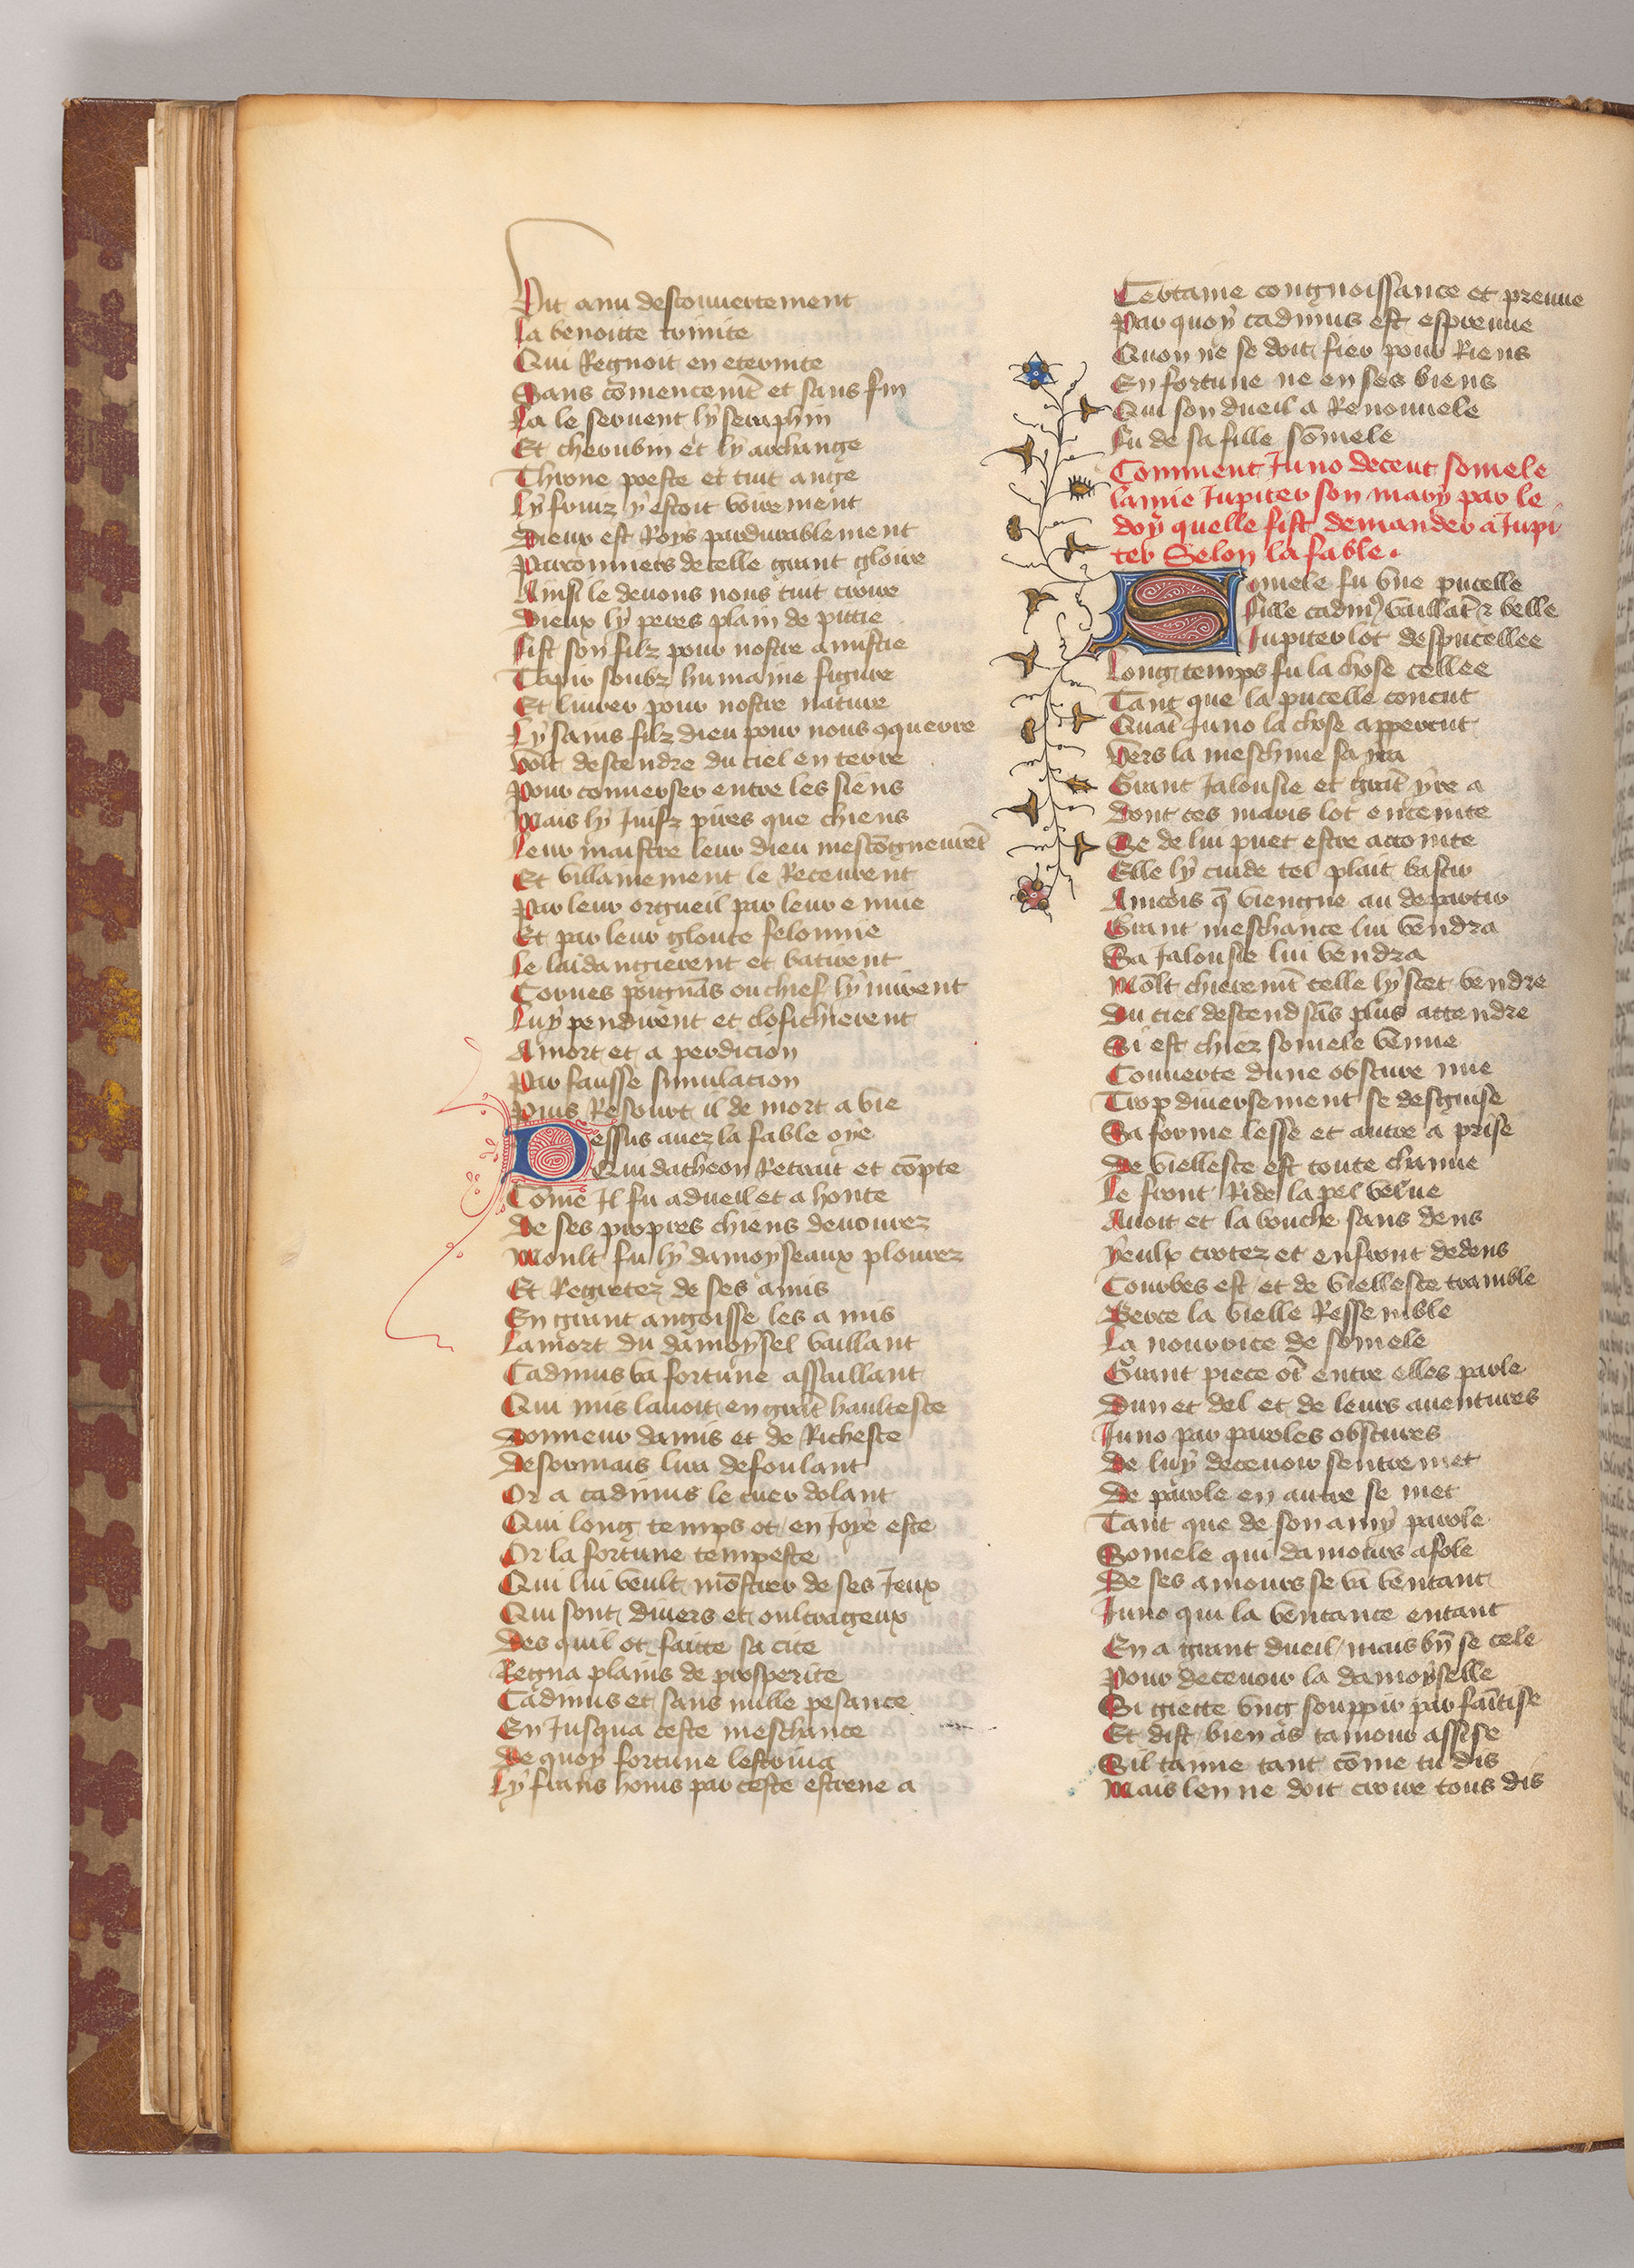 Vit a nu descouuertement
La benoitte trinite
Qui Regnoit en eternite
Sans cōmencemēt et sans fin
La le seruent ly seraphin
Et cherubin et ly archange
Throne poeste et tuit ange
Ly fruiz y estoit voirement
Dieux est Roys pardurablement
Parconniers de celle grant gloire
Ainsi le deuons nous tuit croire
Dieux ly peres plain de pitie
Fist son filz pour nostre amistie
Tapir soubz humaine figure
Et liurer pour nostre nature
Ly sains filz dieu pour nous ꝯquerre
Volt descendre du ciel en terre
Pour conuerser entre les siens
Mais ly Juifz pires que chiens
Leur maistre leur dieu mescōgneurēt
Et villainement le Receurent
Par leur orgueil par leur enuie
Et par leur gloute felonnie
Le laidangierent et batirent
Cornes poignās ou chief ly mirent
Luy pendirent et clofichierent
A mort et a perdicion
Par fausse simulacion
Puis Resourt il de mort a vie
Dessus auez la fable oye
Qui datheon Retrait et cōpte
Cōme Il fu a dueil et a honte
De ses propres chiens deuourez
Moult fu ly damoyseaux plourez
Et Regretez de ses amis
En grant angoisse les a mis
La mort du damoysel vaillant
Cadmus va fortune assaillant
Qui mis lauoit en grāt haultesce
Donneur damis et de Richesce
Desormais lira defoulant
Or a cadmus le cuer dolant
Qui long temps ot en Joye este
Or la fortune tempeste
Qui lui veult mōstrer de ses Jeux
Qui sont diuers et oultrageux
Des quil ot faitte sa cite
Regna plains de prosperite
Cadmus et sans nulle pesance
En Jusqua ceste meschance
De quoy fortune lestriua
Ly frans homs par ceste estrene a
Certaine congnoissance et preuue
Par quoy cadmus est espreuue
Quon ne se doit fier pour Riens
En fortune ne en ses biens
Qui son dueil a Renouuele
Fu de sa fille sōmele
Comment Juno deceut somele
lamie Jupiter son mary par le
doy quelle fist demander a Jupi
ter Selon la fable.
Somele fu vne pucelle
Fille cadmꝰ vaillāt ⁊ belle
Jupiter lot despucellee
Long temps fu la chose cellee
Tant que la pucelle conceut
Quāt Juno la chose apperceut
Vers la meschine sa ira
Grant Jalousie et grāt yre a
Dont ces maris lot enceinte
Se de lui puet estre accointe
Elle ly cuide tel plait bastir
Aincois q̄ viengne au departir
Grant meschance lui vendra
Sa Jalousie lui vendra
Mōlt chieremēt celle ly scet vendre
Du ciel descend sās plus attendre
Si est chiez somele venue
Couuerte dune obscure nue
Trop diuersement se desguise
Sa forme lesse et autre a prise
De viellesce est toute chanue
Le front Ride la pel velue
Auoit et la bouche sans dens
Yeulx crotez et enfront dedens
Courbes est et de viellesce tramble
Berce la vielle Ressemble
La nourrice de somele
Grant piece ōt entre elles parle
Dun et del et de leurs auentures
Juno par paroles obscures
De luy deceuoir sentremet
De parole en autre se met
Tant que de son amy parole
Somele qui damours afole
De ses amours se va ventant
Juno qui la ventance entant
En a grant dueil mais bn̄ se cele
Pour deceuoir la damoyselle
Si giette vng souppir par faītise
Et dist bien as tamour assise
Sil taime tant cōme tu dis
Mais len ne doit croire tous dis